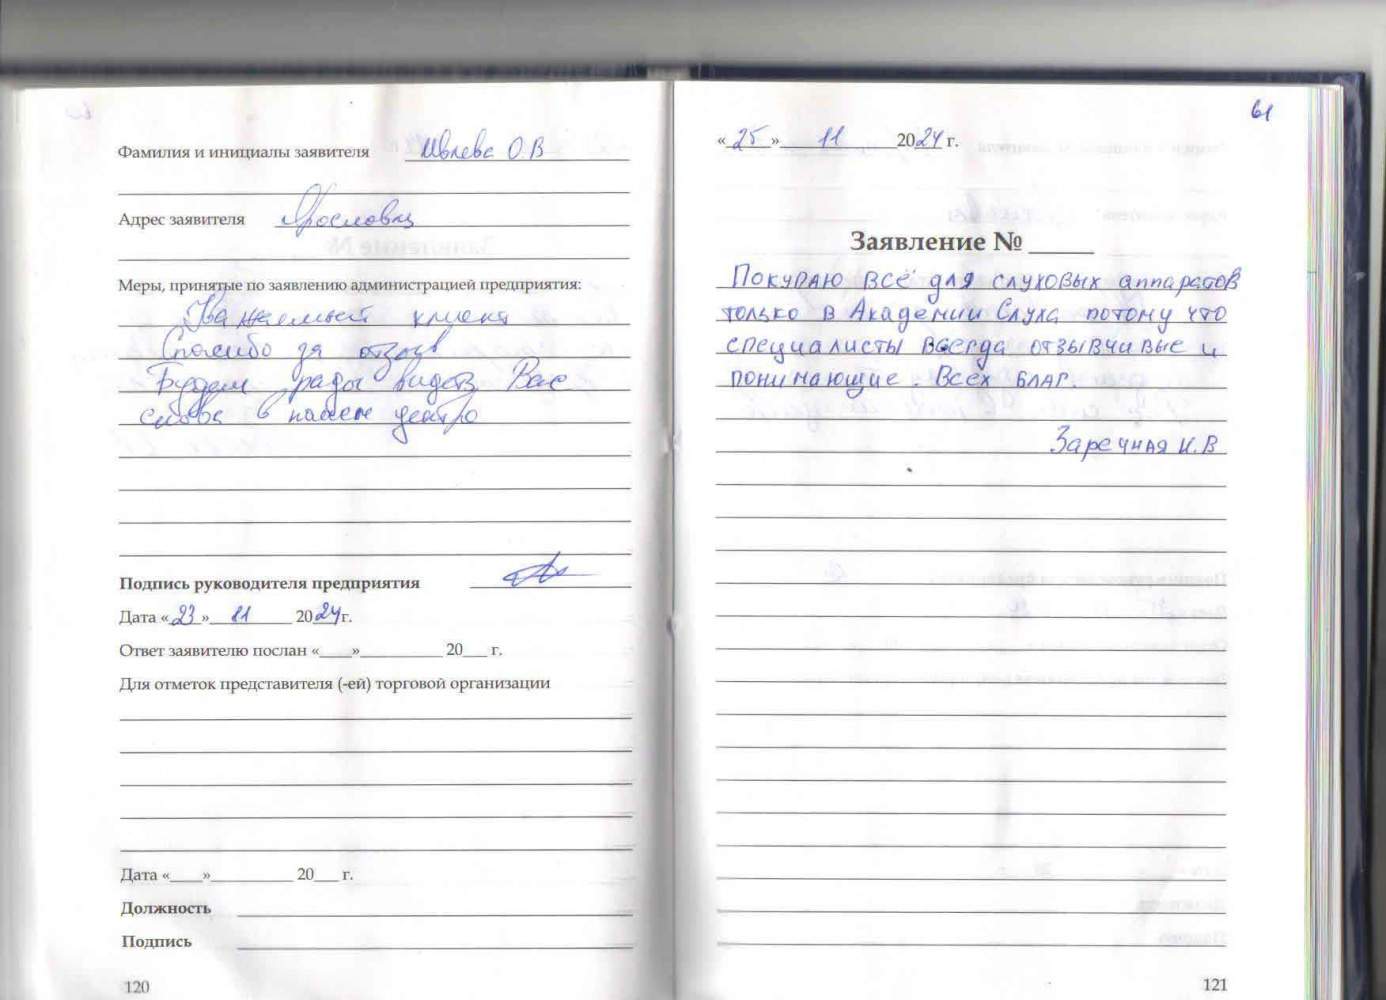 Фамилия и инициалы заявителя Ивлева О.В
Адрес заявителя Ярославль
Меры, принятые по заявлению администрацией предприятия:
Уважаемый клиент
Спасибо за отзыв
Будем рады видеть Вас
снова в нашем центре
Подпись руководителя предприятия
Дата «23» 11 2024г.
Ответ заявителю послан «____»__________ 20___ г.
Для отметок представителя (-ей) торговой организации
Дата «____»__________ 20___ г.
Должность
Подпись
120
61
«25» 11 2024 г.
Заявление № _____
Покупаю всё для слуховых аппаратов
только в Академии Слуха потому что
специалисты всегда отзывчивые и
понимающие. Всех благ.
Заречная И.В
121